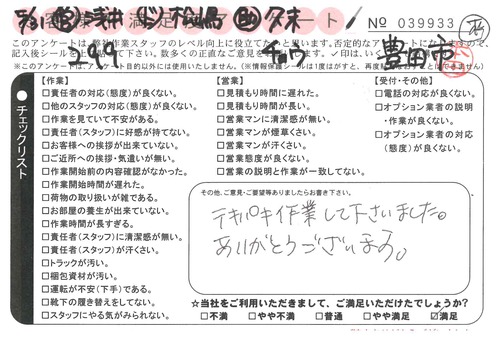 No 039933
このアンケートは、弊社作業スタッフのレベル向上に役立てたいと思います。否定的なアンケートになりますので、
※このアンケートは、アンケート目的以外には使用いたしません。
豊田市
チェックリスト
【作業】
□責任者の対応(態度)が良くない。
□他のスタッフの対応(態度)が良くない。
□作業を見ていて不安がある。
□責任者(スタッフ)に好感が持てない。
□お客様への挨拶が出来ていない。
□ご近所への挨拶・気遣いが無い。
□作業開始前の内容確認がなかった。
□作業開始時間が遅れた。
□荷物の取り扱いが雑である。
□お部屋の養生が出来ていない。
□作業時間が長すぎる。
□責任者(スタッフ)に清潔感が無い。
□責任者(スタッフ)が汗くさい。
□トラックが汚い。
□梱包資材が汚い。
□運転が不安(下手)である。
□靴下の履き替えをしてない。
□スタッフにやる気がみられない。
【営業】
□見積もり時間に遅れた。
□見積もり時間が長い。
□営業マンに清潔感が無い。
□営業マンが煙草くさい。
□営業マンが汗くさい。
□営業態度が良くない。
□営業の説明と作業が一致してない。
【受付・その他】
□電話の対応が良くない。
□オプション業者の説明
・作業が良くない。
□オプション業者の対応
(態度)が良くない。
その他、ご意見・ご要望等ありましたらお書き下さい。
テキパキ作業して下さいました。
ありがとうございます。
☆当社をご利用いただきまして、ご満足いただけたでしょうか?
□不満 □やや不満 □普通 □やや満足 ☑満足